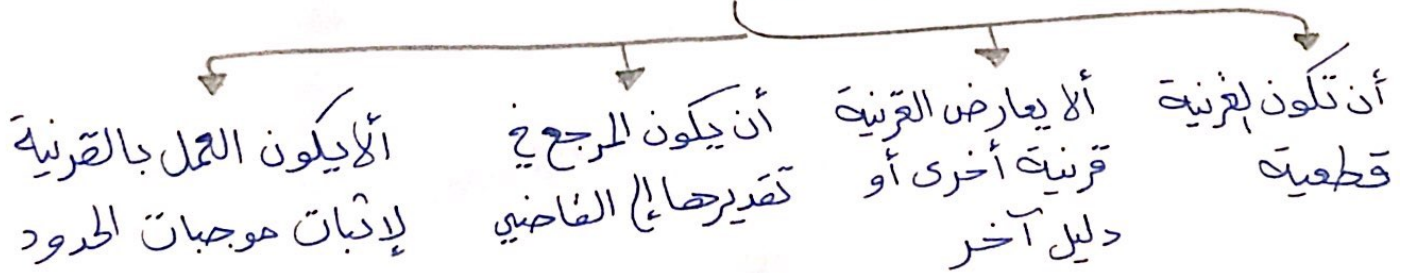 أن تكون القرنية
قطعية
ألا يعارض القرنية
قرنية أخرى أو
دليل آخر
أن يكون المرجع في
تقديرها إلى القاضي
ألا يكون العمل بالقرنية
لإثبات موجبات الحدود